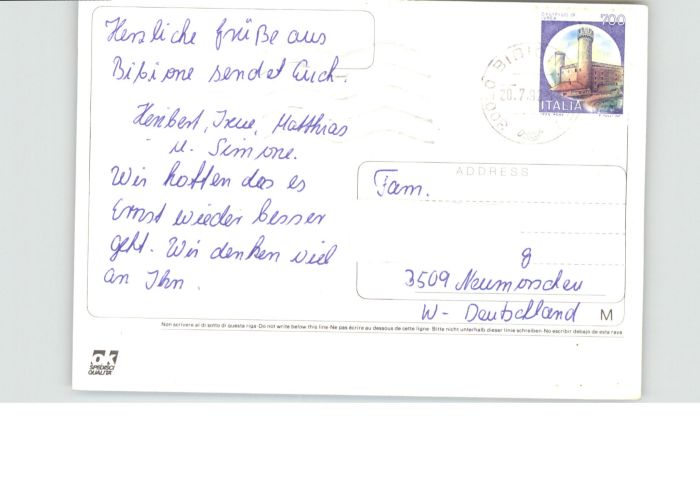 Herzliche Grüße aus
Bibione sendet Euch
Heribert, Irene, Matthias
u. Simone.
Wir hoffen das es
Ernst wieder besser
geht. Wir denken viel
an Ihn.
700
ITALIA
ADDRESS
Fam.
g
3509 Neumorschen
W- Deutschland
M
Non scrivere al di sotto di questa riga-Do not write below this line-Ne pas écrire au dessous de cette ligne-Bitte nicht unterhalb dieser linie schreiben-No escribir debajo de esta raya
ok
SPEDISCI
QUALITÀ